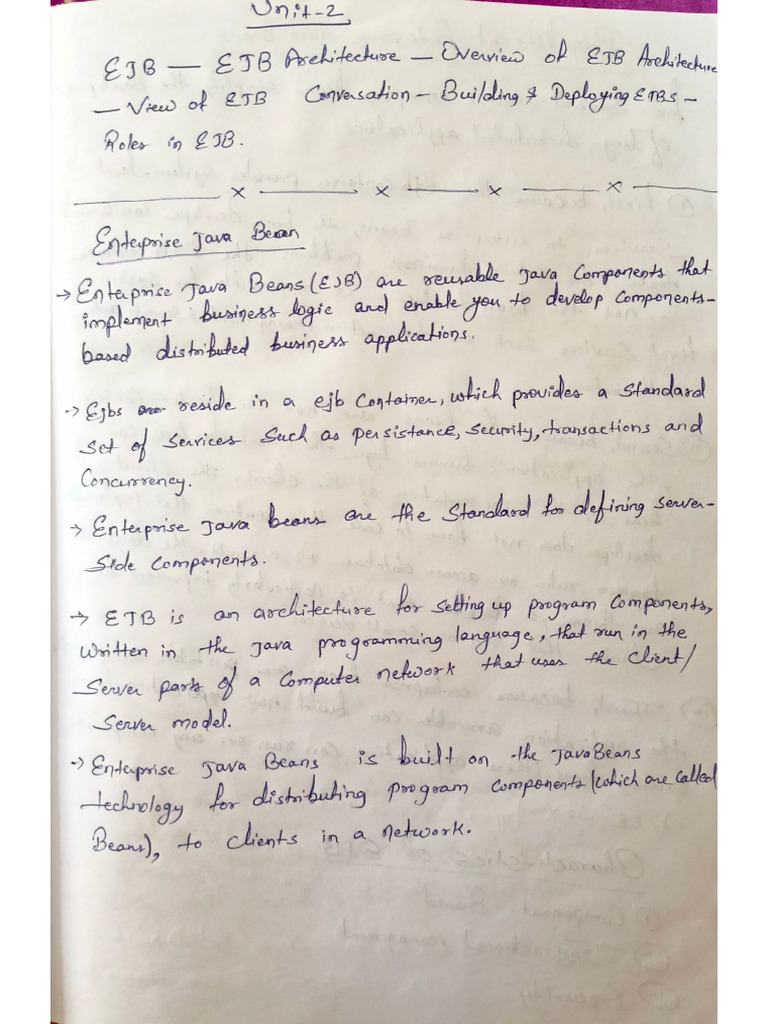 Unit-2
EJB — EJB Architecture — Overview of EJB Architecture
— View of EJB Conversation — Building & Deploying EJBs —
Roles in EJB.
Enterprise Java Bean
→ Enterprise Java Beans (EJB) are reusable Java Components that
implement business logic and enable you to develop components-
based distributed business applications.
→ Ejbs are reside in a ejb Container, which provides a Standard
Set of Services Such as persistance, security, transactions and
Concurrency.
→ Enterprise Java beans are the Standard for defining server-
Side Components.
→ EJB is an architecture for setting up program Components,
written in the Java programming language, that run in the
Server parts of a Computer network that uses the Client/
Server model.
→ Enterprise Java Beans is built on the JavaBeans
technology for distributing program components (which are called
Beans), to clients in a network.